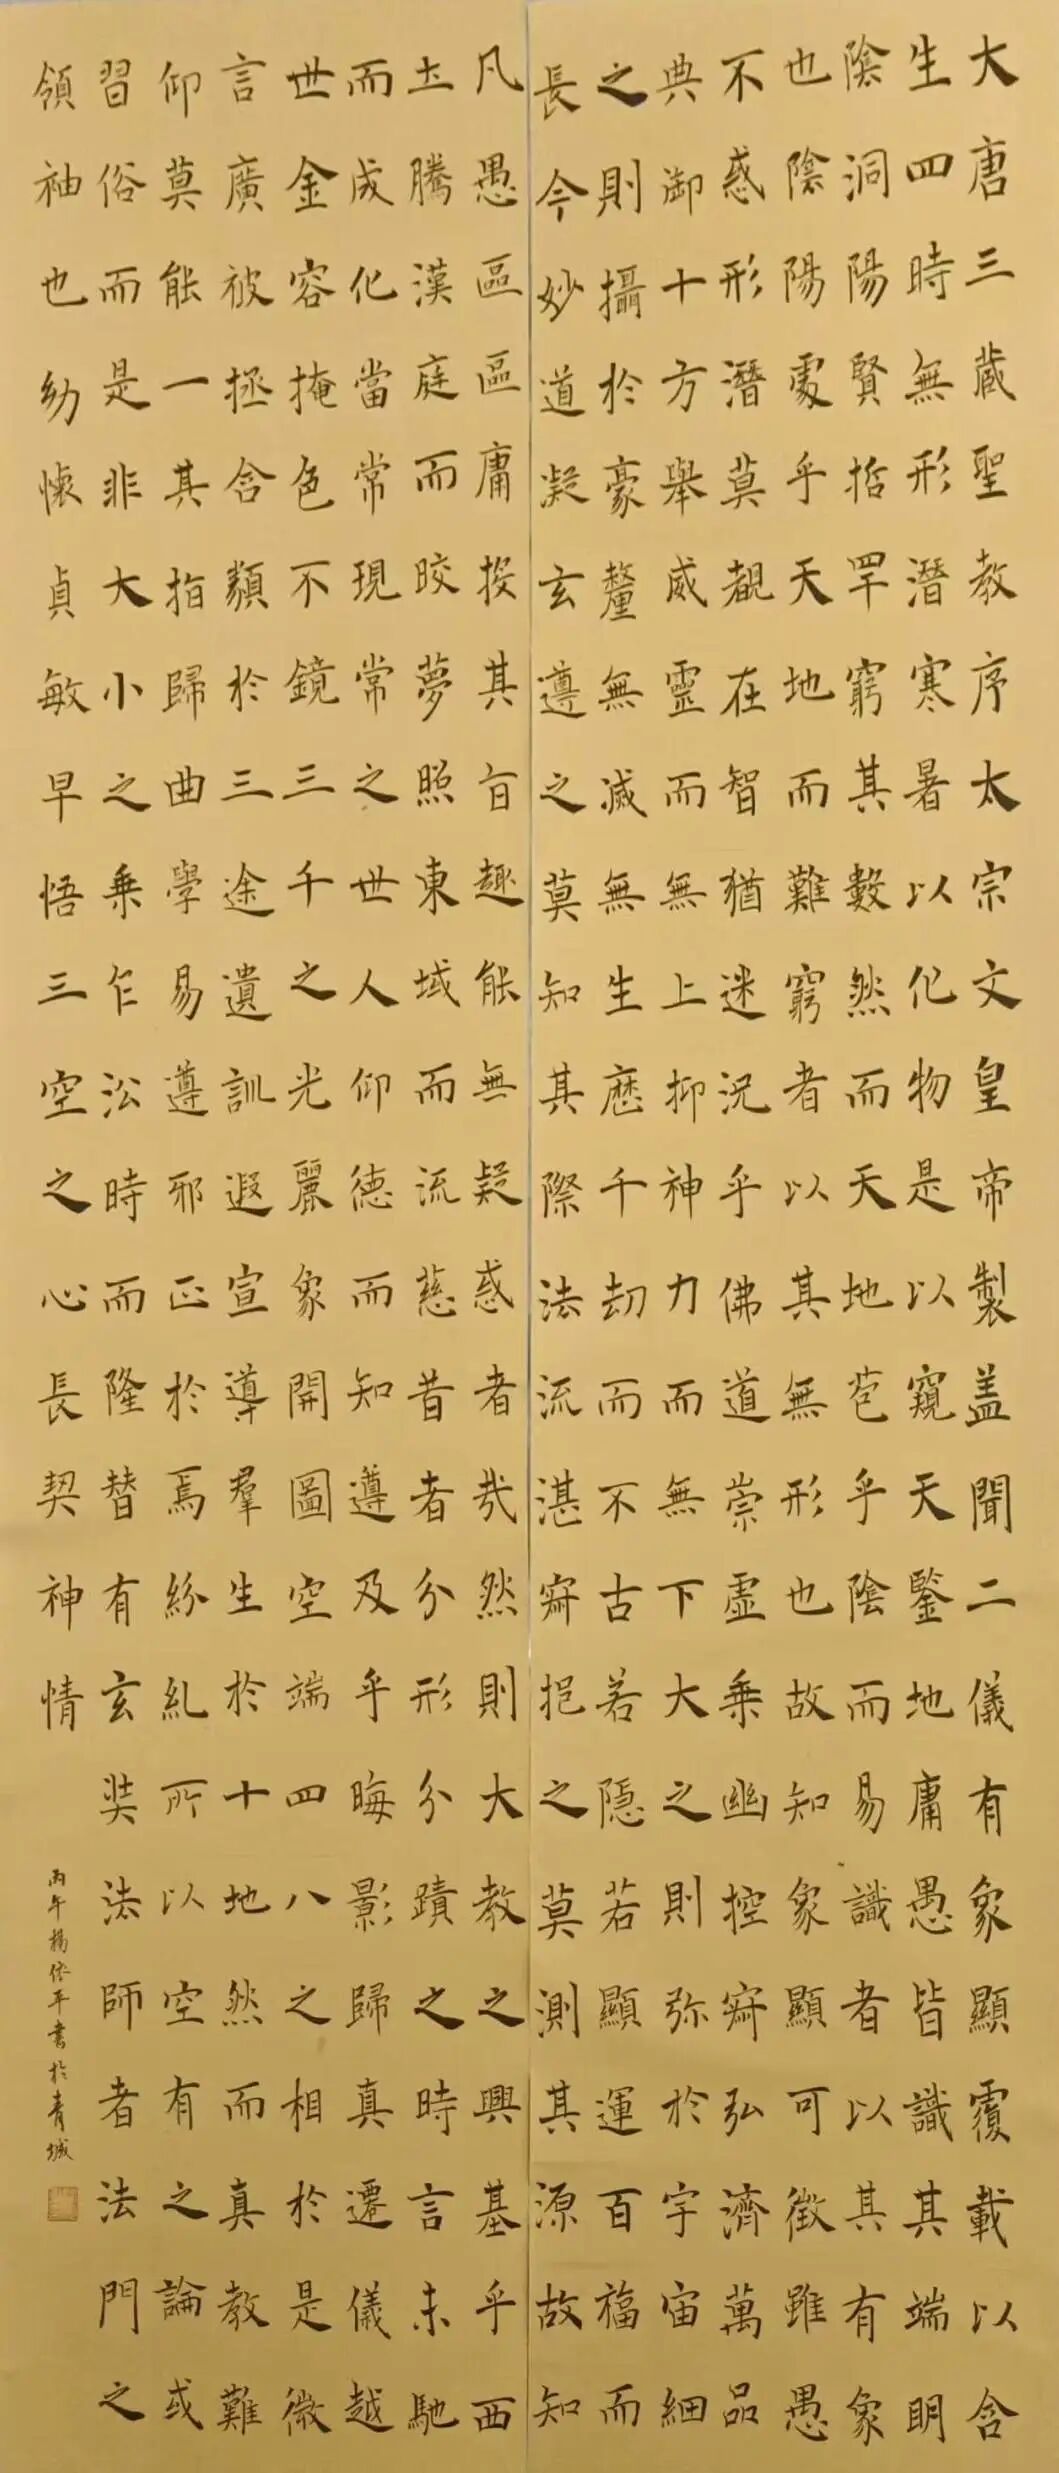 大唐三藏聖教序太宗文皇帝製盖聞二儀有象顯覆載以含
生四時無形潛寒暑以化物是以窺天鑒地庸愚皆識其端明
陰洞陽賢哲罕窮其數然而天地苞乎陰而易識者以其有象
也陰陽處乎天地而難窮者以其無形也故知象顯可徵雖愚
不惑形潛莫覩在智猶迷況乎佛道崇虛乘幽控寂弘濟萬品
典御十方舉威靈而無上抑神力而無下大之則弥於宇宙細
之則攝於豪釐無滅無生歷千劫而不古若隱若顯運百福而
長今妙道凝玄遵之莫知其際法流湛寂挹之莫測其源故知
凡愚區區庸投其旨趣能無疑惑者哉然則大教之興基乎西
土騰漢庭而皎夢照東域而流慈昔者分形分蹟之時言未馳
而成化當常現常之世人仰德而知遵及乎晦影歸真遷儀越
世金容掩色不鏡三千之光麗象開圖空端四八之相於是微
言廣被拯含類於三途遺訓遐宣導羣生於十地然而真教難
仰莫能一其指歸曲學易遵邪正於焉紛糺所以空有之論或
習俗而是非大小之乘乍沿時而隆替有玄奘法師者法門之
領袖也幼懷貞敏早悟三空之心長契神情
丙午楊平書於青城